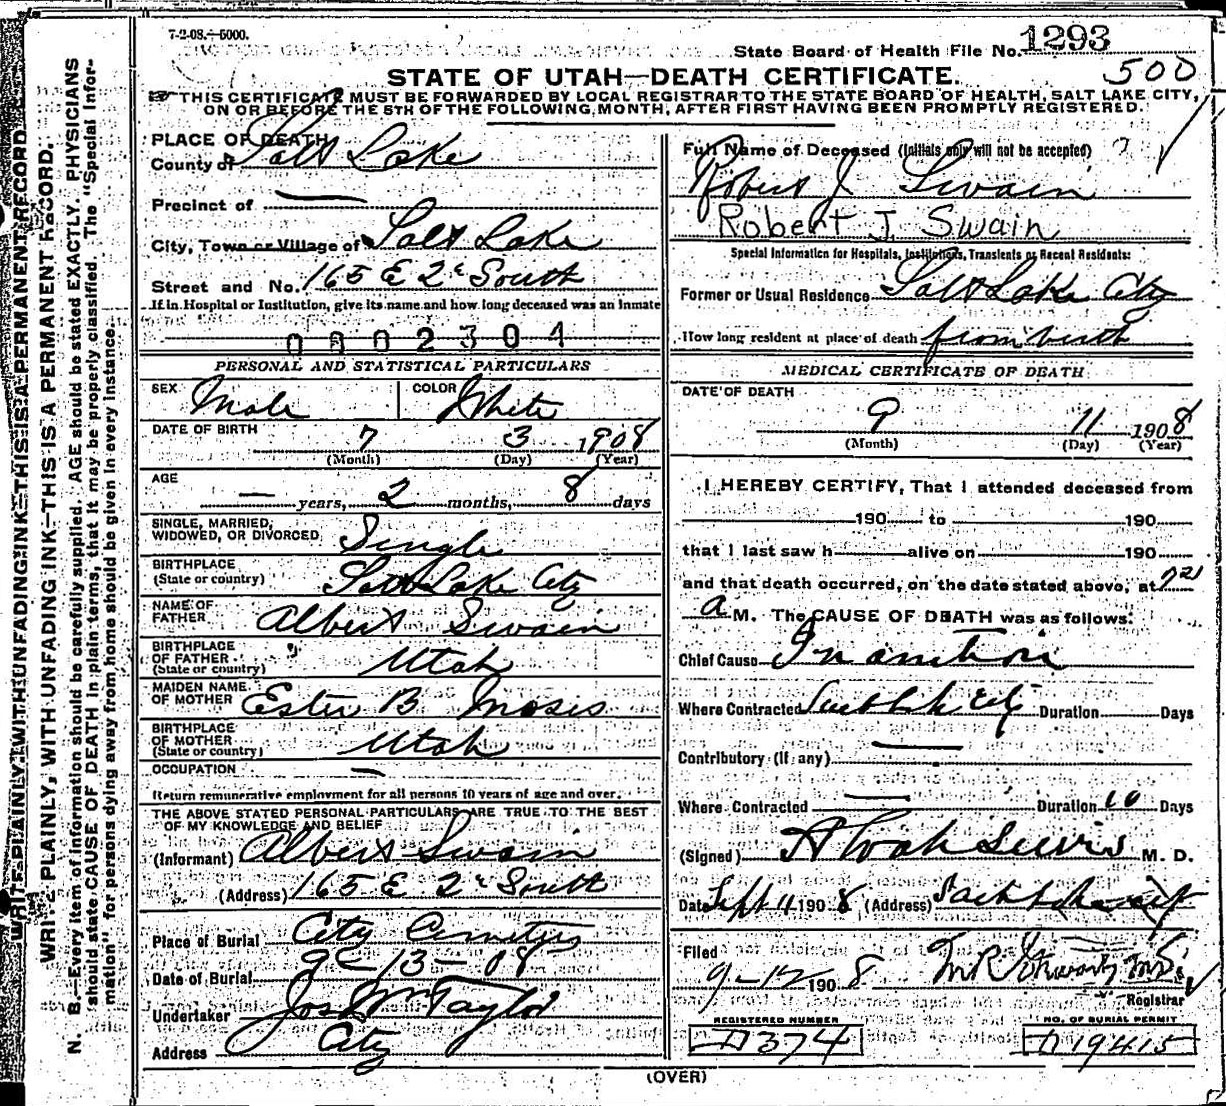 7-2-08.—5000.
State Board of Health File No. 1293
500
STATE OF UTAH—DEATH CERTIFICATE.
THIS CERTIFICATE MUST BE FORWARDED BY LOCAL REGISTRAR TO THE STATE BOARD OF HEALTH, SALT LAKE CITY,
ON OR BEFORE THE 5TH OF THE FOLLOWING MONTH, AFTER FIRST HAVING BEEN PROMPTLY REGISTERED.
WRITE PLAINLY, WITH UNFADING INK—THIS IS A PERMANENT RECORD.
WRITE PLAINLY, WITH UNFADING INK—THIS IS A PERMANENT RECORD.
N. B.—Every item of information should be carefully supplied. AGE should be stated EXACTLY. PHYSICIANS
should state CAUSE OF DEATH in plain terms, that it may be properly classified. The "Special Infor-
mation" for persons dying away from home should be given in every instance.
PLACE OF DEATH
County of Salt Lake
Precinct of —
City, Town or Village of Salt Lake
Street and No. 165 E 2d South
If in Hospital or Institution, give its name and how long deceased was an inmate
0002304
PERSONAL AND STATISTICAL PARTICULARS
SEX Male COLOR White
DATE OF BIRTH 7 3 1908
(Month) (Day) (Year)
AGE — years, 2 months, 8 days
SINGLE, MARRIED,
WIDOWED, OR DIVORCED Single
BIRTHPLACE
(State or country) Salt Lake City
NAME OF
FATHER Albert Swain
BIRTHPLACE
OF FATHER
(State or country) Utah
MAIDEN NAME
OF MOTHER Ester B Moses
BIRTHPLACE
OF MOTHER
(State or country) Utah
OCCUPATION —
Return remunerative employment for all persons 10 years of age and over.
THE ABOVE STATED PERSONAL PARTICULARS ARE TRUE TO THE BEST
OF MY KNOWLEDGE AND BELIEF
(Informant) Albert Swain
(Address) 165 E 2d South
Place of Burial City Cemetery
Date of Burial 9-13-08
Undertaker Jos Wm Taylor
Address City
Full Name of Deceased (Initials only will not be accepted) ?
Robert J Swain
Robert J. Swain
Special Information for Hospitals, Institutions, Transients or Recent Residents:
Former or Usual Residence Salt Lake City
How long resident at place of death from birth
MEDICAL CERTIFICATE OF DEATH
DATE OF DEATH
9 11 1908
(Month) (Day) (Year)
I HEREBY CERTIFY, That I attended deceased from
190 to 190
that I last saw h alive on 190
and that death occurred, on the date stated above, at
a M. The CAUSE OF DEATH was as follows:
Chief Cause Inanition
Where Contracted Salt Lake City Duration Days
Contributory (if any) —
Where Contracted — Duration 10 Days
(Signed) M. D.
Date Sept 11 1908 (Address) Salt Lake City
Filed
9-12-1908
Registrar
REGISTERED NUMBER
D374
NO. OF BURIAL PERMIT
D19415
(OVER)